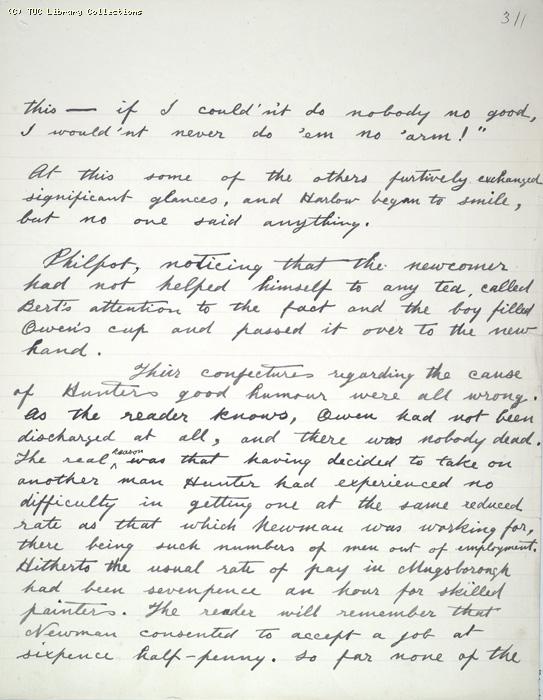 (C) TUC Library Collections
311
this — if I could'nt do nobody no good,
I would'nt never do 'em no 'arm!"
At this some of the others furtively exchanged
significant glances, and Harlow began to smile,
but no one said anything.
Philpot, noticing that the newcomer
had not helped himself to any tea, called
Bert's attention to the fact and the boy filled
Owen's cup and passed it over to the new
hand.
Their conjectures regarding the cause
of Hunters good humour were all wrong.
As the reader knows, Owen had not been
discharged at all, and there was nobody dead.
The real reason was that having decided to take on
another man Hunter had experienced no
difficulty in getting one at the same reduced
rate as that which Newman was working for,
there being such numbers of men out of employment.
Hitherto the usual rate of pay in Mugsborough
had been sevenpence an hour for skilled
painters. The reader will remember that
Newman consented to accept a job at
sixpence half-penny. So far none of the